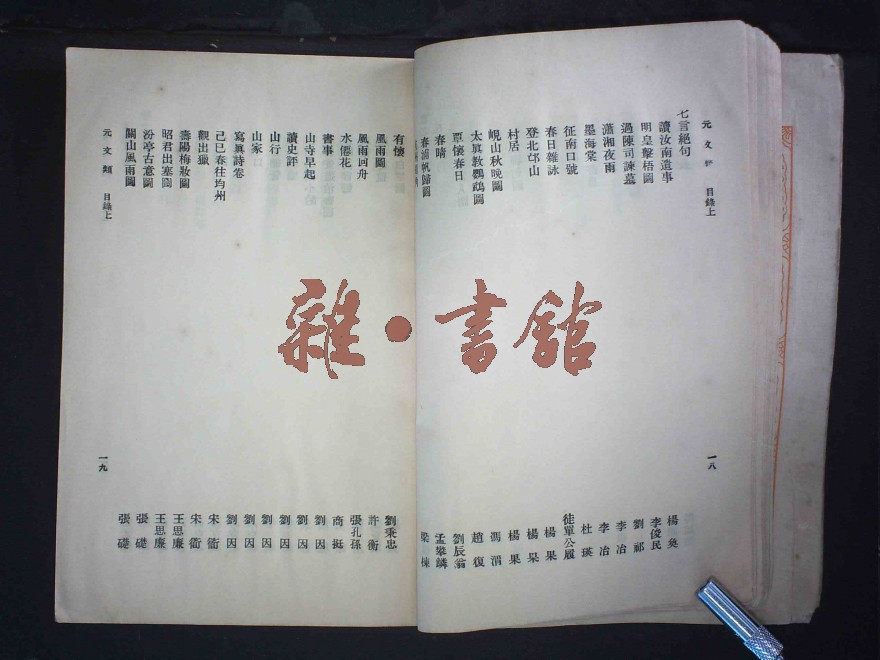 元文 目錄上
七言絕句
讀汝南遺事 楊奐
明皇擊梧圖 李俊民
過陳司諫墓 劉祁
瀟湘夜雨 李冶
墨海棠 李冶
征南口號 杜瑛
春日雜詠 徒單公履
登北邙山 楊果
村居 楊果
峴山秋晚圖 楊果
太眞教鸚鵡圖 馮渭
覃懷春日 趙復
春晴 劉辰翁
春浦帆歸圖 孟攀鱗
梁棟
一八
有懷 劉秉忠
風雨圖 許衡
風雨回舟 張孔孫
水僊花 商挺
書事 劉因
山寺早起 劉因
讀史評 劉因
山行 劉因
山家 劉因
寫眞詩卷 劉因
己巳春往均州 宋衜
觀出獵 宋衜
壽陽梅妝圖 王思廉
昭君出塞圖 王思廉
汾亭古意圖 張礎
關山風雨圖 張礎
元文類 目錄上
一九
雜·書館